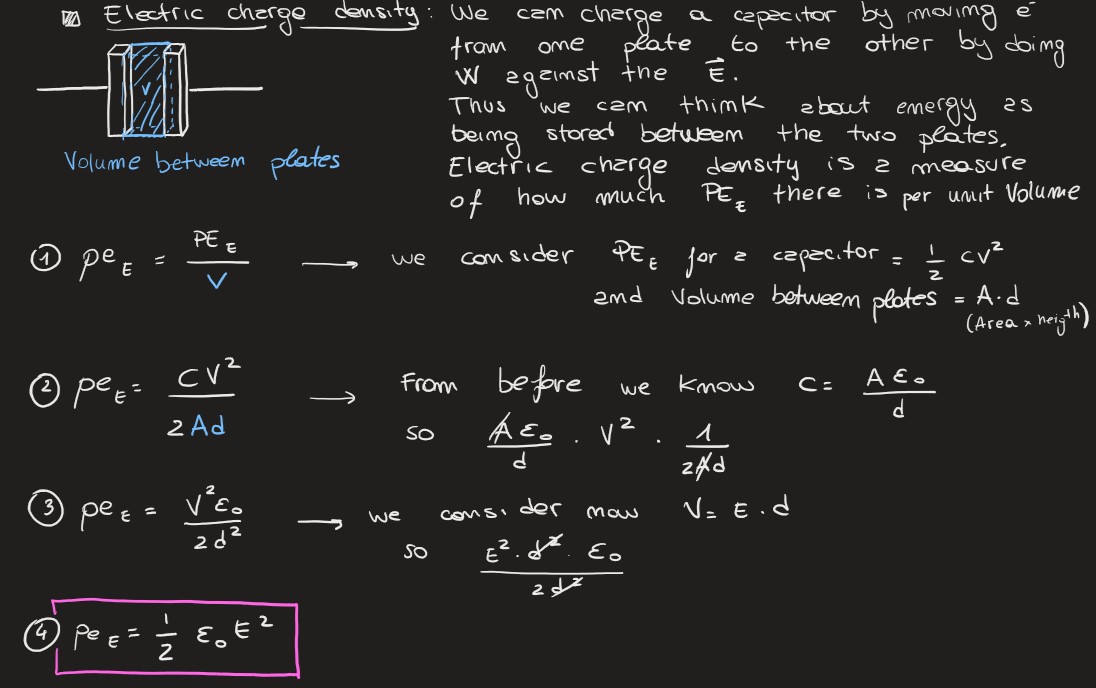 Electric charge density: We can charge a capacitor by moving e⁻
from one plate to the other by doing
W against the E⃗.
Thus we can think about energy as
being stored between the two plates.
Electric charge density is a measure
of how much PE_E there is per unit Volume
V
Volume between plates
① pe_E = PE_E / V → we consider PE_E for a capacitor = 1/2 CV²
and Volume between plates = A·d
(Area × heigth)
② pe_E = CV² / 2Ad → From before we know C = Aε₀ / d
so Aε₀ / d · V² · 1 / 2Ad
③ pe_E = V²ε₀ / 2d² → we consider now V = E·d
so E²·d²·ε₀ / 2d²
④ pe_E = 1/2 ε₀ E²